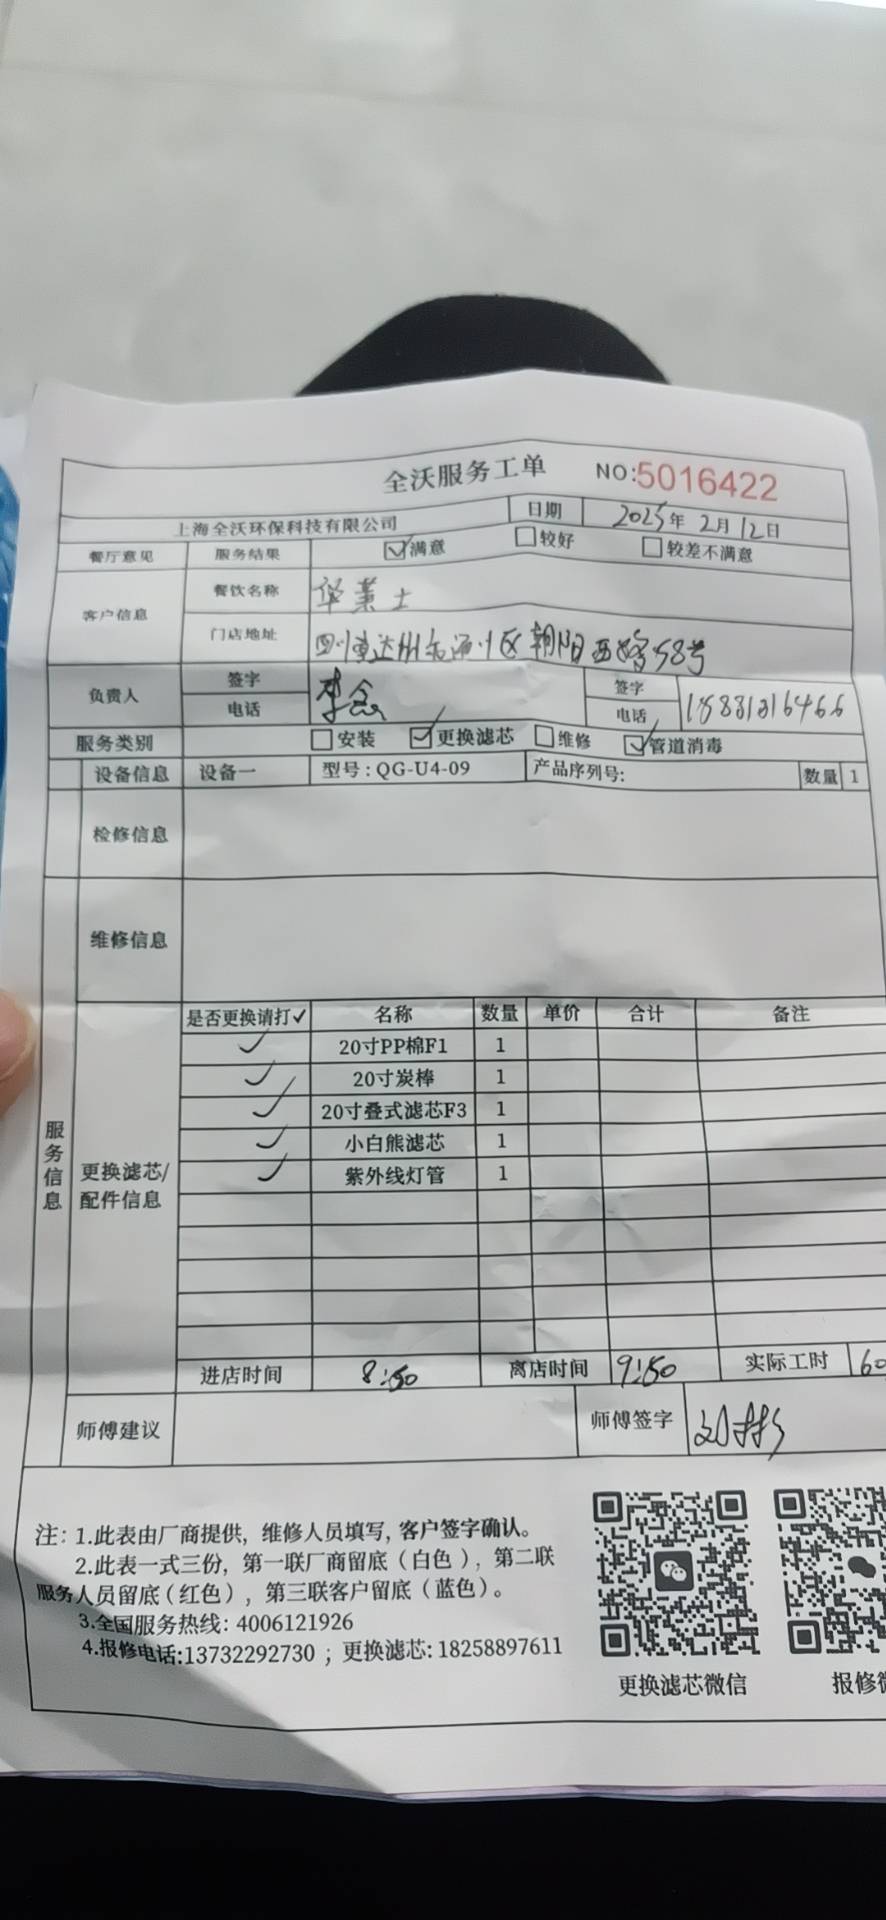 全沃服务工单 NO:5016422
上海全沃环保科技有限公司 日期 2025年2月12日
餐厅意见 服务结果 ☑满意 □较好 □较差不满意
客户信息 餐饮名称 华莱士
门店地址 四川省达州市通川区朝阳西路58号
负责人 签字 签字
电话 电话 18831316466
服务类别 □安装 ☑更换滤芯 □维修 ☑管道消毒
设备信息 设备一 型号:QG-U4-09 产品序列号: 数量 1
检修信息
维修信息
服务信息
更换滤芯/配件信息
是否更换请打✓ 名称 数量 单价 合计 备注
✓ 20寸PP棉F1 1
✓ 20寸炭棒 1
✓ 20寸叠式滤芯F3 1
✓ 小白熊滤芯 1
✓ 紫外线灯管 1
进店时间 8:50 离店时间 9:50 实际工时 60
师傅建议 师傅签字
注: 1.此表由厂商提供, 维修人员填写, 客户签字确认。
2.此表一式三份, 第一联厂商留底(白色), 第二联
服务人员留底(红色), 第三联客户留底(蓝色)。
3.全国服务热线: 4006121926
4.报修电话:13732292730 ; 更换滤芯: 18258897611
更换滤芯微信 报修微